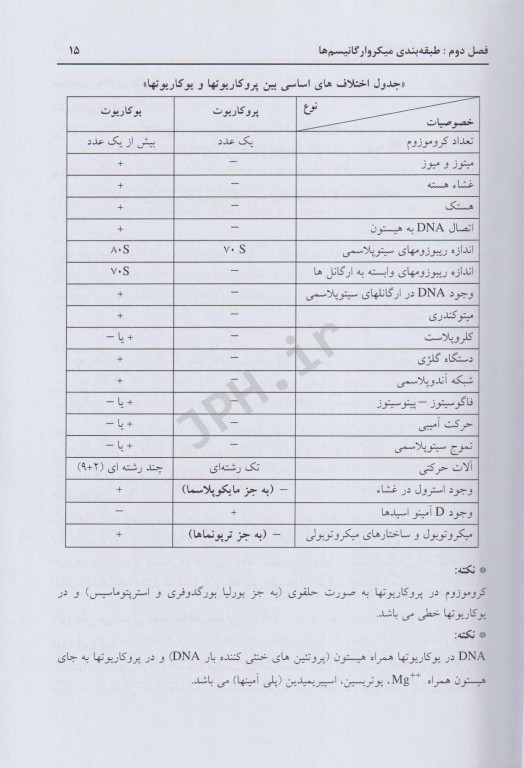 فصل دوم : طبقه‌بندی میکروارگانیسم‌ها ۱۵
«جدول اختلاف های اساسی بین پروکاریوتها و یوکاریوتها»
نوع خصوصیات پروکاریوت یوکاریوت
تعداد کروموزوم یک عدد بیش از یک عدد
میتوز و میوز – +
غشاء هسته – +
هستک – +
اتصال DNA به هیستون – +
اندازه ریبوزومهای سیتوپلاسمی ۷۰ S ۸۰S
اندازه ریبوزومهای وابسته به ارگانل ها – ۷۰S
وجود DNA در ارگانلهای سیتوپلاسمی – +
میتوکندری – +
کلروپلاست – + یا –
دستگاه گلژی – +
شبکه آندوپلاسمی – +
فاگوسیتوز – پینوسیتوز – + یا –
حرکت آمیبی – + یا –
تموج سیتوپلاسمی – + یا –
آلات حرکتی تک رشته‌ای چند رشته ای (۲+۹)
وجود استرول در غشاء – (به جز مایکوپلاسما) +
وجود D آمینو اسیدها + –
میکروتوبول و ساختارهای میکروتوبولی – (به جز ترپونماها) +
※ نکته:
کروموزوم در پروکاریوتها به صورت حلقوی (به جز بورلیا بورگدوفری و استرپتوماسیس) و در
یوکاریوتها خطی می باشد.
※ نکته:
DNA در یوکاریوتها همراه هیستون (پروتئین های خنثی کننده بار DNA) و در پروکاریوتها به جای
هیستون همراه Mg++، پوتریسین، اسپیریمیدین (پلی آمینها) می باشد.
JPH.ir